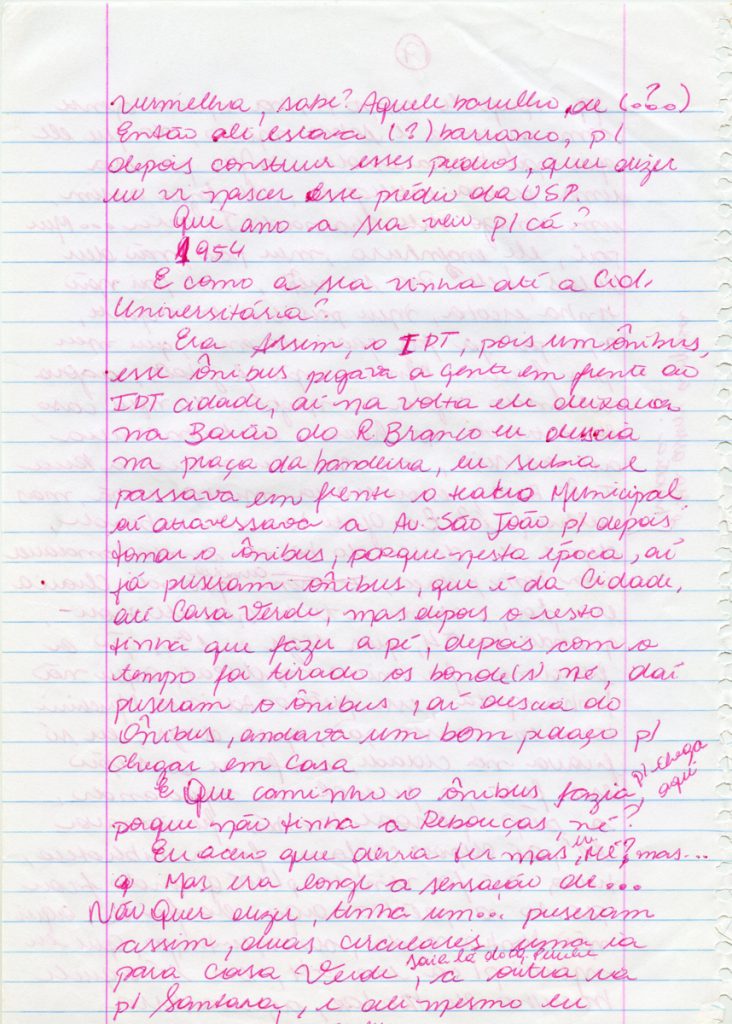 7
vermelha, sabe? Aquele barulho, de (...?)
Então ali escava (?) barranco, p/
depois construir esses prédios, quer dizer
eu vi nascer esse prédio da USP.
Que ano a sra veio p/ cá?
1954
E como a sra vinha até a Cid.
Universitária?
Era Assim, o IPT, pois um ônibus,
esse ônibus pegava a gente em frente ao
IPT cidade, aí na volta ele deixava
na Barão do R. Branco eu descia
na praça da bandeira, eu subia e
passava em frente o teatro Municipal
aí atravessava a Av. São João p/ depois
tomar o ônibus, porque nesta época, aí
já puseram ônibus, que é da Cidade,
até Casa Verde, mas depois o resto
tinha que fazer a pé, depois com o
tempo foi tirado os bonde(s) né, daí
puseram o ônibus, aí descia do
Ônibus, andava um bom pedaço p/
chegar em casa
E Que caminho o ônibus fazia, p/ chega aqui
porque não tinha a Rebouças, né?
Eu acero que devia ter mas, né?, mas...
Mas era longe a sensação de...
Não Quer dizer, tinha um... puseram
assim, duas circulares, uma ia
para Casa Verde, saia lá do a outra ia
p/ Santana, e ali mesmo eu